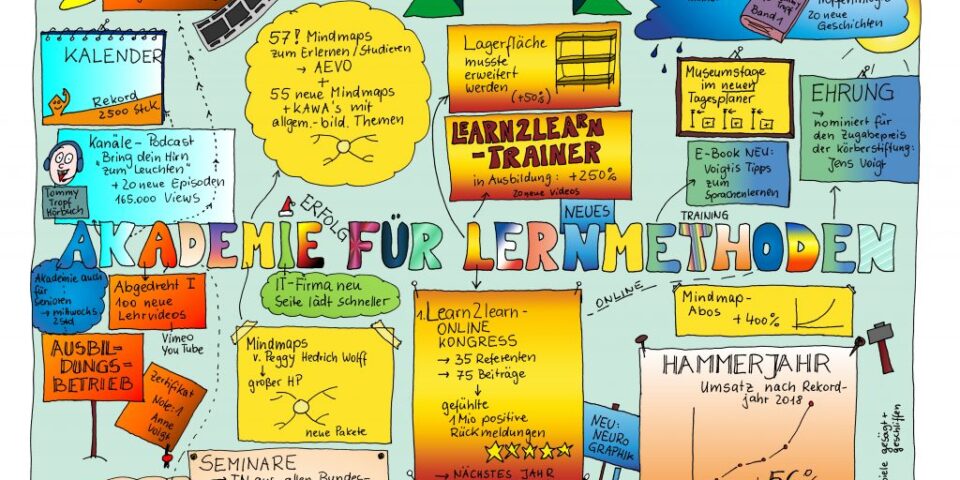 Band 1
20 neue
Geschichten
KALENDER
Rekord
2500 Stck.
57! Mindmaps
zum Erlernen/Studieren
→ AEVO
+
55 neue Mindmaps
+ KAWA's mit
allgem.-bild. Themen
Lagerfläche
musste
erweitert
werden
(+50%)
Museumstage
im neuen
Tagesplaner
EHRUNG
→
nominiert für
den Zugabepreis
der Körberstiftung:
Jens Voigt
Kanäle - Podcast
"Bring dein Hirn
zum Leuchten"
+ 20 neue Episoden
165.000 Views
Tommy
Tropf
Hörbuch
LEARN2LEARN
-TRAINER
in Ausbildung: +250%
20 neue Videos
E-Book NEU:
Voigtis Tipps
zum
Sprachenlernen
ERFOLG
NEUES
TRAINING
AKADEMIE FÜR LERNMETHODEN
Akademie auch
für
Senioren
→ mittwochs
2Std
Abgedreht I
100 neue
Lehrvideos
Vimeo
YouTube
IT-Firma neu
Seite lädt schneller
ONLINE
Mindmap-
Abos
+400%
AUSBIL-
DUNGS=
BETRIEB
Zertifikat
Note: 1
Anne
Voigt
Mindmaps
v. Peggy Hedrich Wolff
↓
großer HP
neue Pakete
1. Learn2learn-
ONLINE
KONGRESS
→ 35 Referenten
→ 75 Beiträge
↓
gefühlte
1 Mio positive
Rückmeldungen
→ NÄCHSTES JAHR
NEU:
NEURO
GRAPHIK
HAMMERJAHR
Umsatz nach Rekord-
jahr 2018
gesägt +
geschliffen
SEMINARE
→ TN aus allen Bundes-